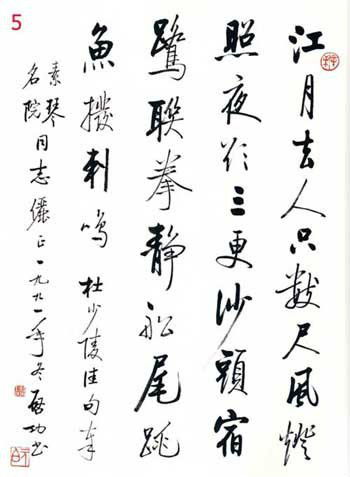 5
江月去人只數尺風燈
照夜欲三更沙頭宿
鷺聯拳靜船尾跳
魚撥剌鳴 杜少陵佳句奉
素琴
名院
同志儷正一九九一年冬啓功書